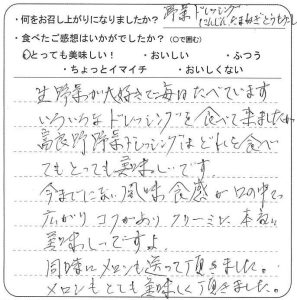 ・何をお召し上がりになりましたか？ 野菜ドレッシング
にんじん たまねぎ とうもろこし
・いかがご感想はいかがでしたか？（○で囲む）
・とっても美味しい！ ・おいしい ・ふつう
・ちょっとイマイチ ・おいしくない
生野菜が大好きで毎日たべています
いろいろなドレッシングを食べて来ましたが
高良野野菜ドレッシングはどれを食べ
てもとっても美味しいです。
今までにない風味 食感が口の中で
広がり コクがあり クリーミー 本当に
美味しいですよ
同時にメロンも送って頂きました。
メロンもとても美味しく頂きました。